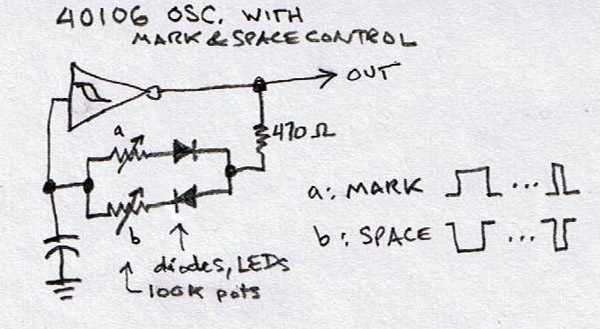 40106 OSC. WITH
MARK & SPACE CONTROL
OUT
470Ω
a
b
a: MARK ...
b: SPACE ...
diodes, LEDs
100K pots